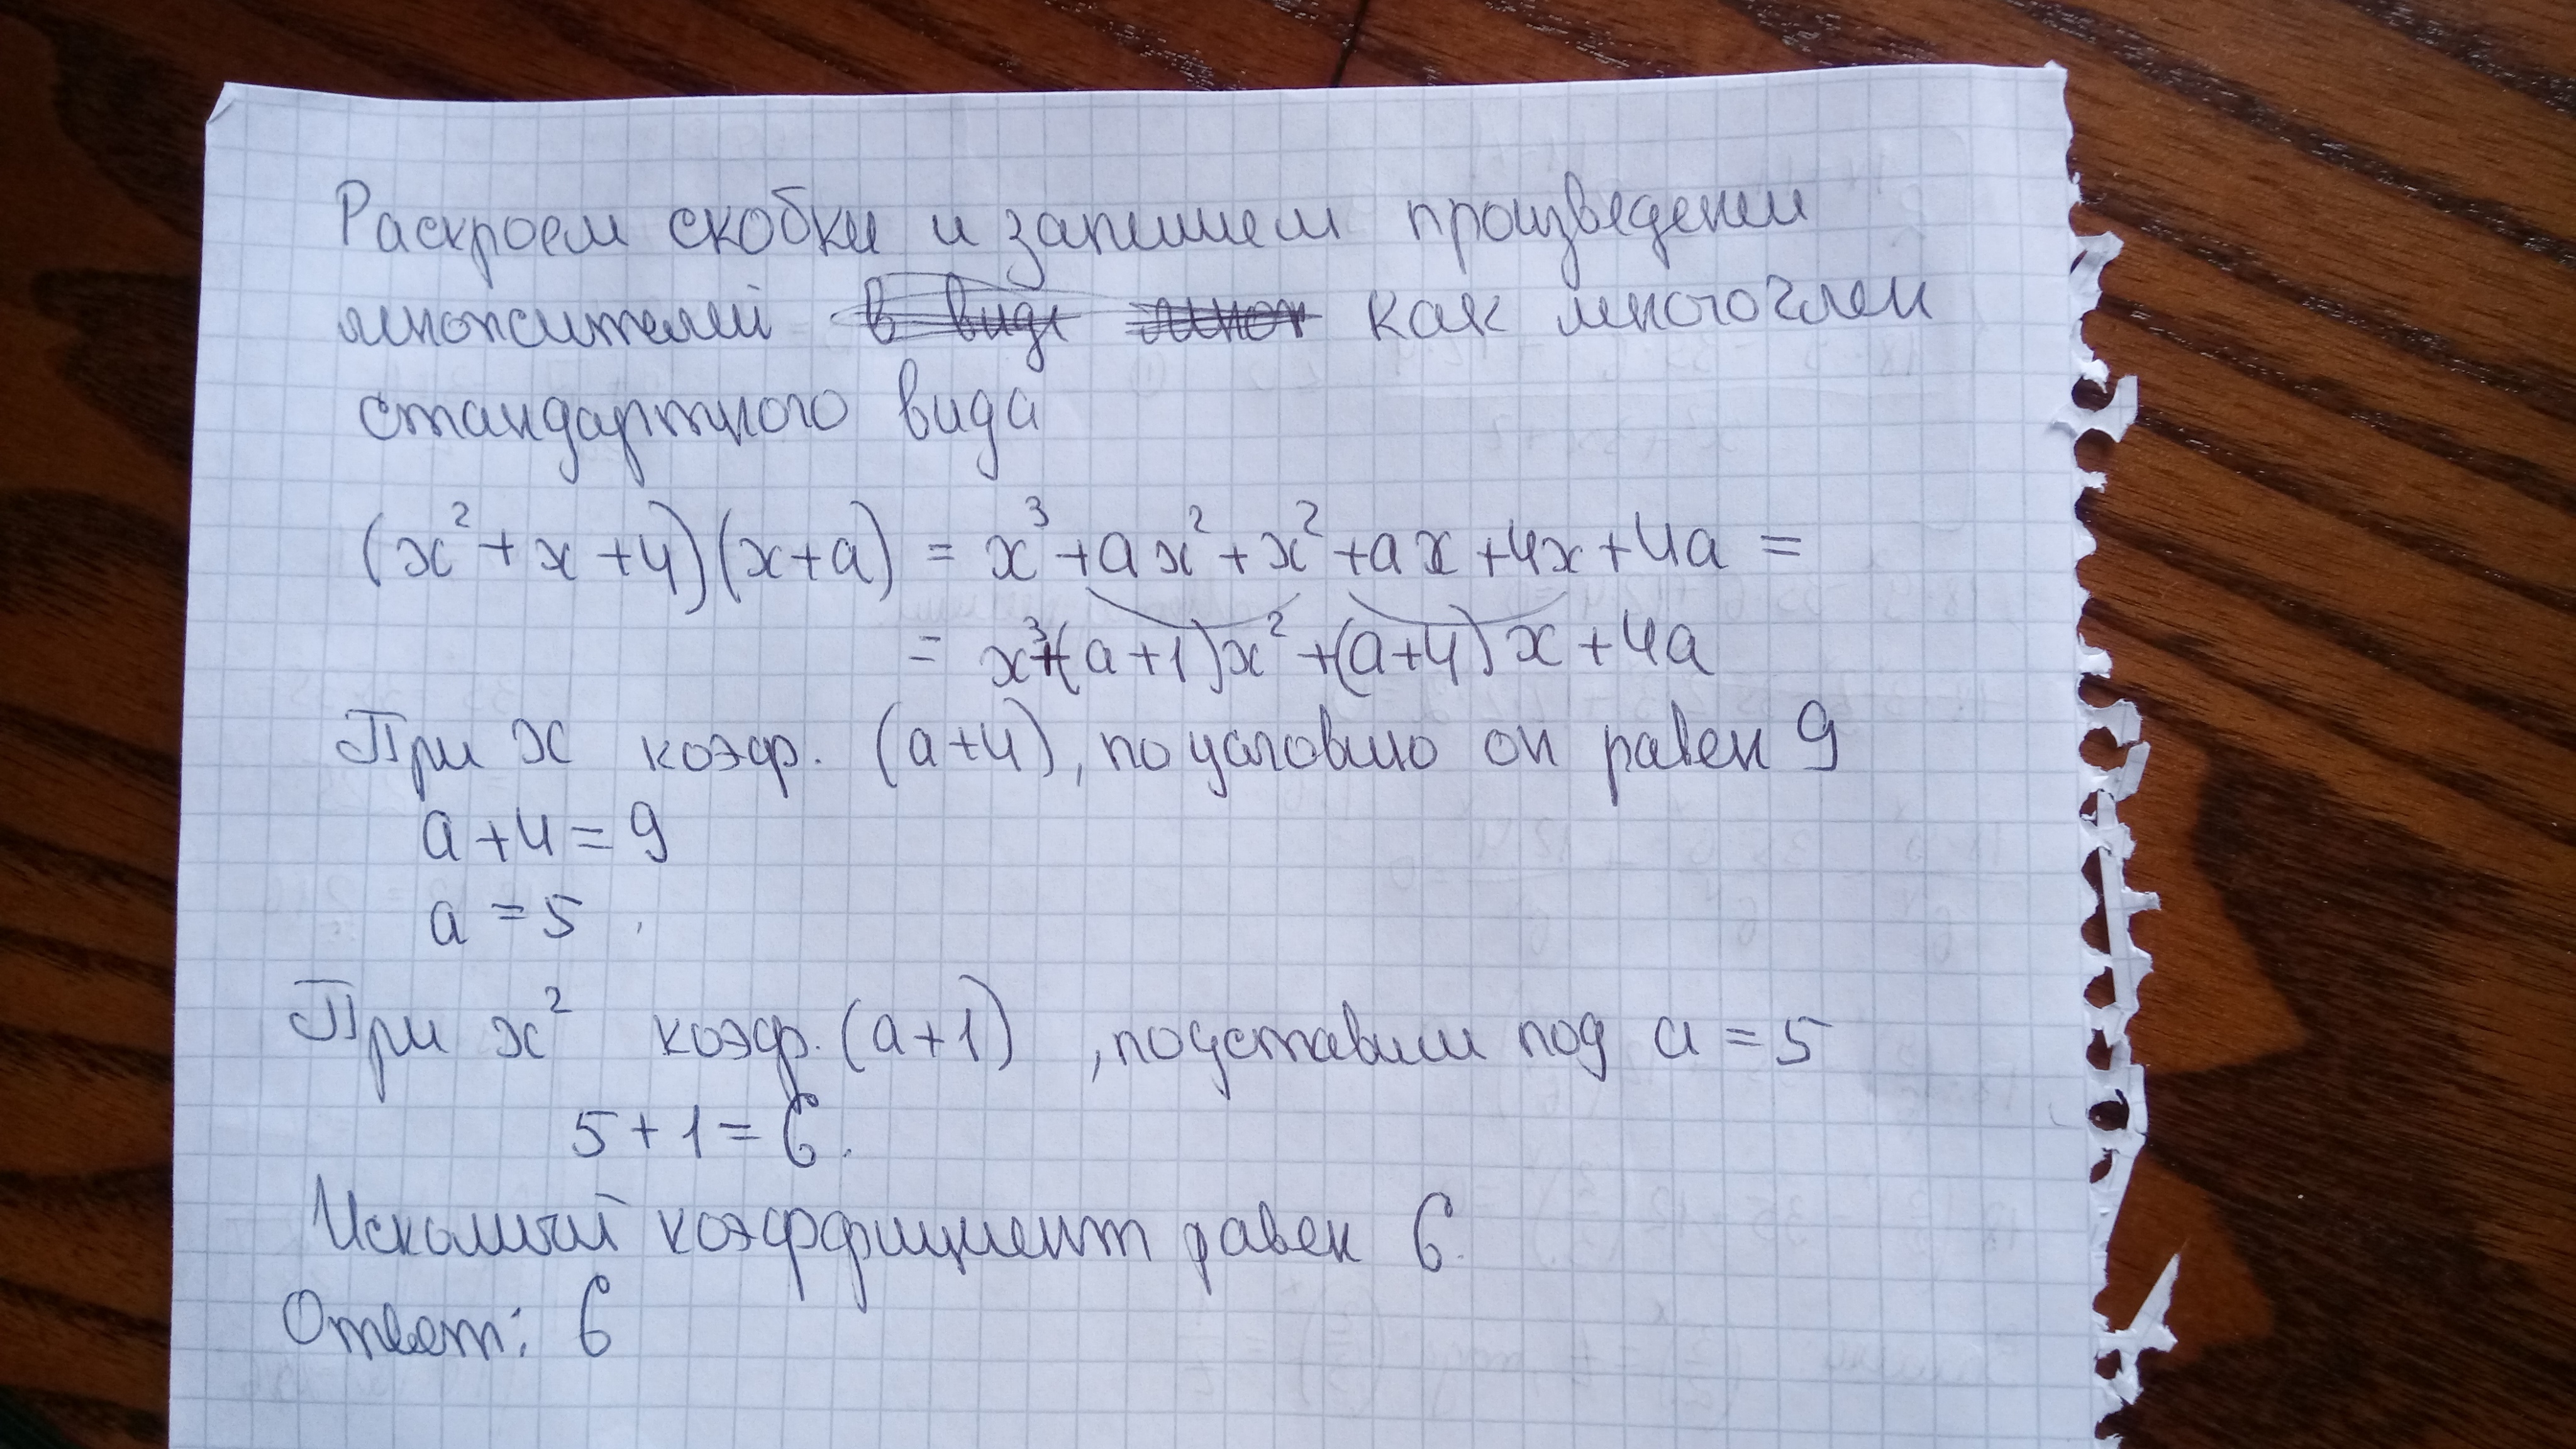 Раскроем скобки и запишем произведении
множителей ~~в виде~~ ~~мног~~ как многочлен
стандартного вида
(x² + x + 4)(x + a) = x³ + ax² + x² + ax + 4x + 4a =
= x³ + (a + 1)x² + (a + 4)x + 4a
При x коэф. (a + 4), по условию он равен 9
a + 4 = 9
a = 5
При x² коэф. (a + 1), подставим под a = 5
5 + 1 = 6.
Искомый коэффициент равен 6.
Ответ: 6